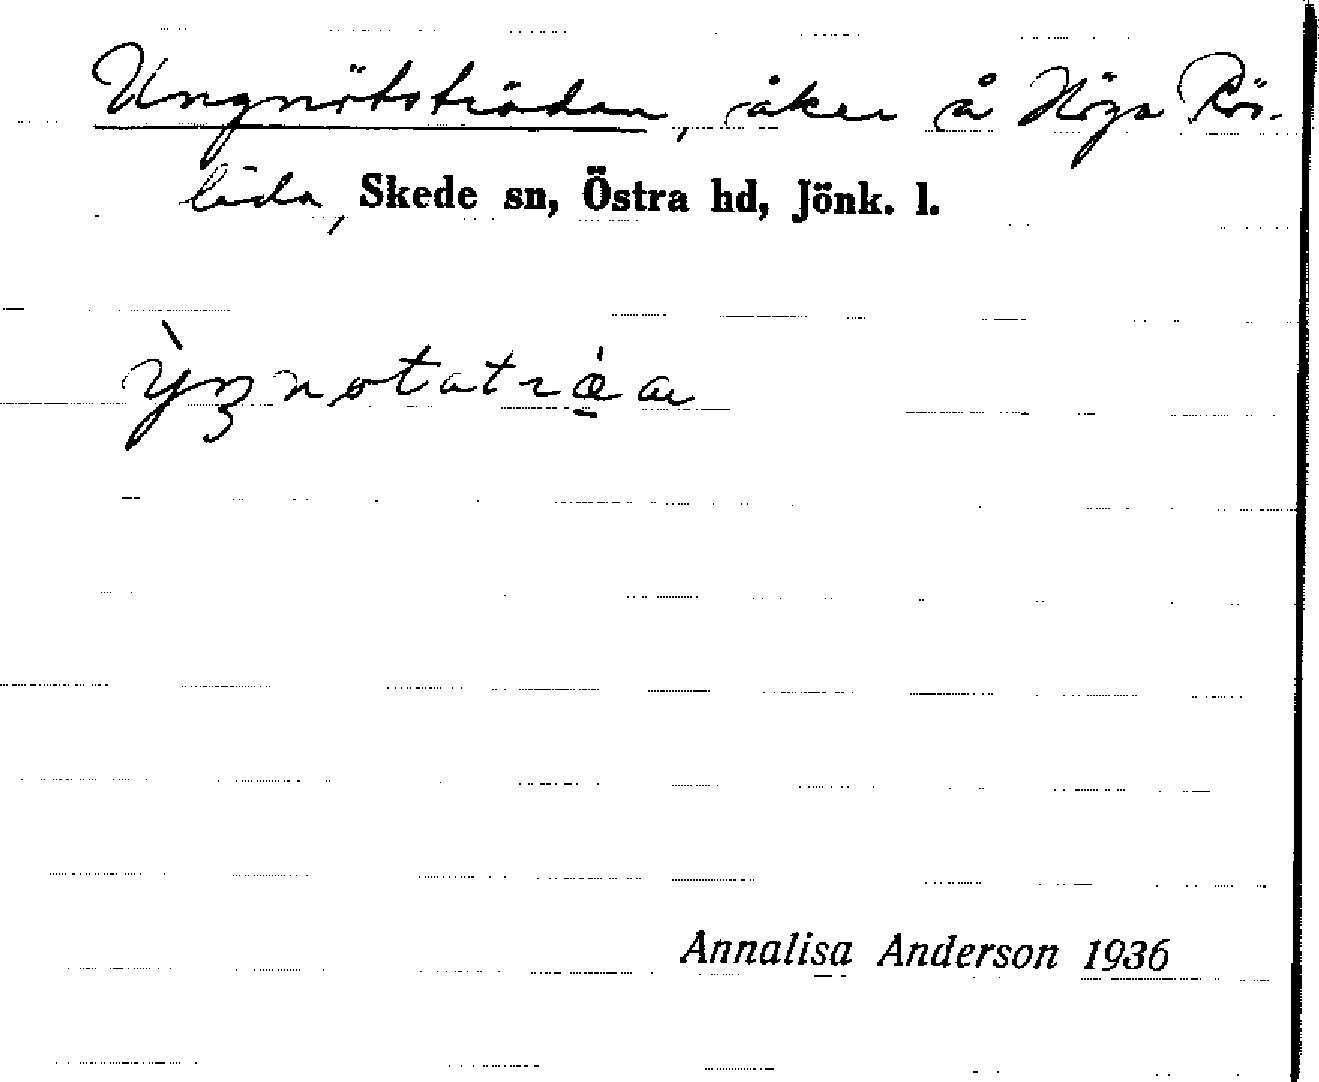 Ungnötsträdan, åker å Höga Rös-
lida, Skede sn, Östra hd, Jönk. l.
Annalisa Anderson 1936